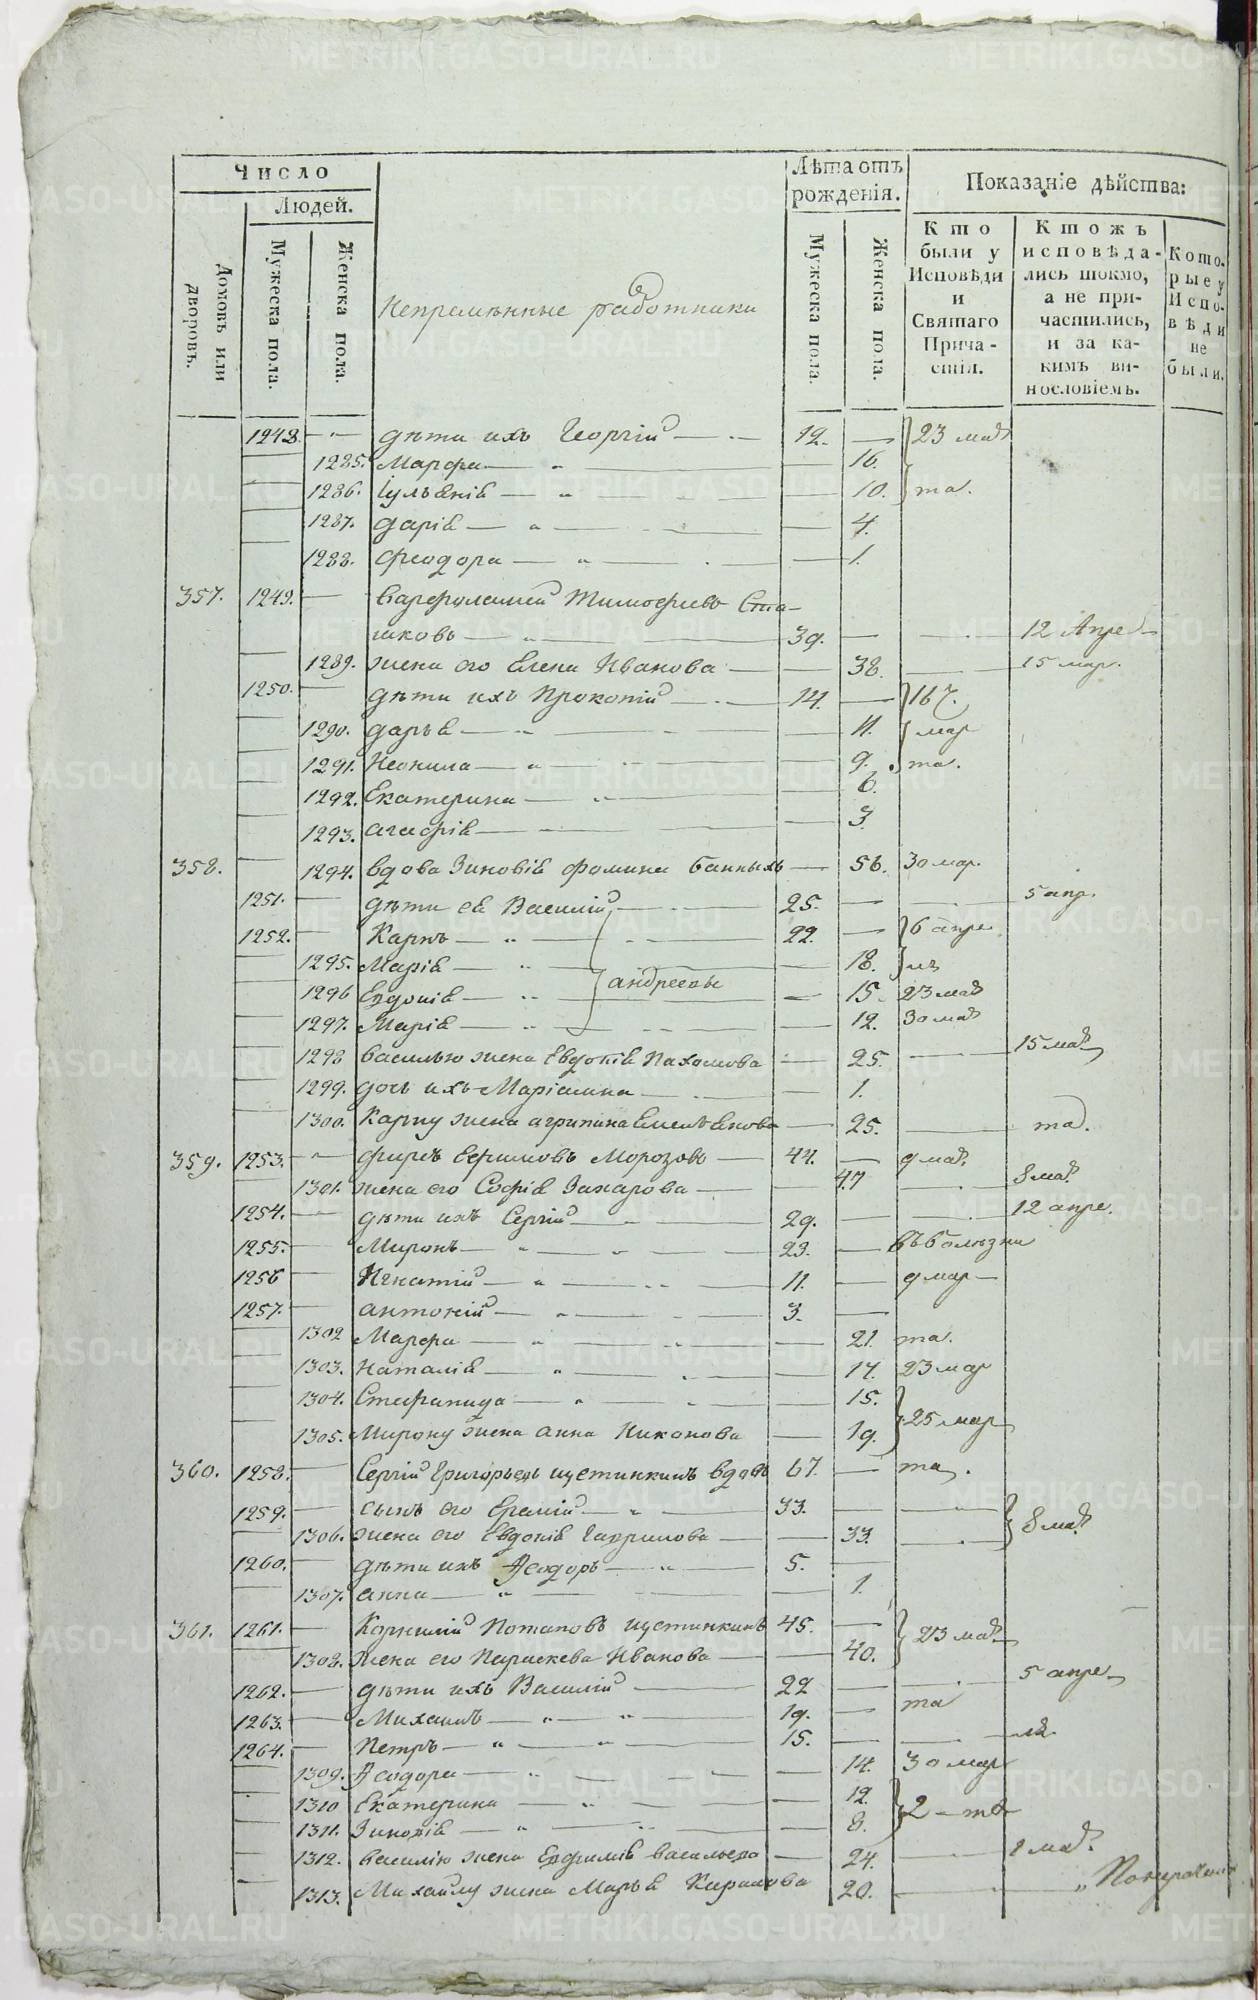 Число
Людей.
Домовъ или дворовъ.
Мужеска пола.
Женска пола.
Непремѣнные работники
Лѣта отъ рожденія.
Мужеска пола.
Женска пола.
Показаніе дѣйства:
Кто были у Исповѣди и Святаго Причастія.
Ктожъ исповѣдались токмо, а не причастились, и за какимъ винословіемъ.
Которые у Исповѣди не были.
1248. дѣти ихъ Георгій 12. 23 мар
1285. Марфа 16.
1286. Іуліанія 10. та.
1287. дарія 4.
1288. феодора 1.
357. 1249. Варфоломей Тимофѣевъ Ста-
шковъ 39. 12 Апре
1289. жена его Елена Иванова 38. 15 мар.
1250. дѣти ихъ Прокопій 14. 16
1290. дарья 11. мар
1291. Неонила 9. та.
1292. Екатерина 6.
1293. агафія 3
358. 1294. вдова Зиновія фомина банныхъ 56. 30 мар.
1251. дѣти ея Василій 25. 5 апр.
1252. Карпъ 22. 6 апре
1295. Марія 18. ля
андреевы
1296 Евдокія 15. 23 мар
1297. Марія 12. 30 мар
1298 василью жена Евдокія Пахомова 25. 15 мар
1299. дочь ихъ Маріамна 1.
1300. Карпу жена агрипина Емельянова 25. та.
359. 1253. фирсъ Ефимовъ Морозовъ 44. 9 мар.
1301. жена его Софія Захарова 47 8 мар.
1254. дѣти ихъ Сергій 29. 12 апре.
1255. Миронъ 23. въ болѣзни
1256 Игнатій 11. 9 мар
1257. антоній 3.
1302 Марфа 21. та.
1303. Наталія 17. 23 мар
1304. Стефанида 15.
25 мар
1305. Мирону жена анна Никонова 19.
360. 1258. Сергій Григорьевъ щетинкинъ вдовъ 67. та.
1259. сынъ его Еремій 33.
8 мар
1306. жена его Евдокія Гаврилова 33.
1260. дѣти ихъ Ѳеодоръ 5.
1307. анна 1.
361. 1261. Корнилій Потаповъ щетинкинъ 45.
23 мар
1308. жена его Параскева Иванова 40.
1262. дѣти ихъ Василій 22 5 апре
1263. Михаилъ 19. та
1264. Петръ 15. ля
1309. Ѳеодора 14. 30 мар
1310 Екатерина 12.
2 - та
1311. Зиновія 8.
1312. василію жена Евфимія васильева 24. 1 мар.
1313. Михайлу жена Марья Карпова 20.
METRIKI.GASO-URAL.RU